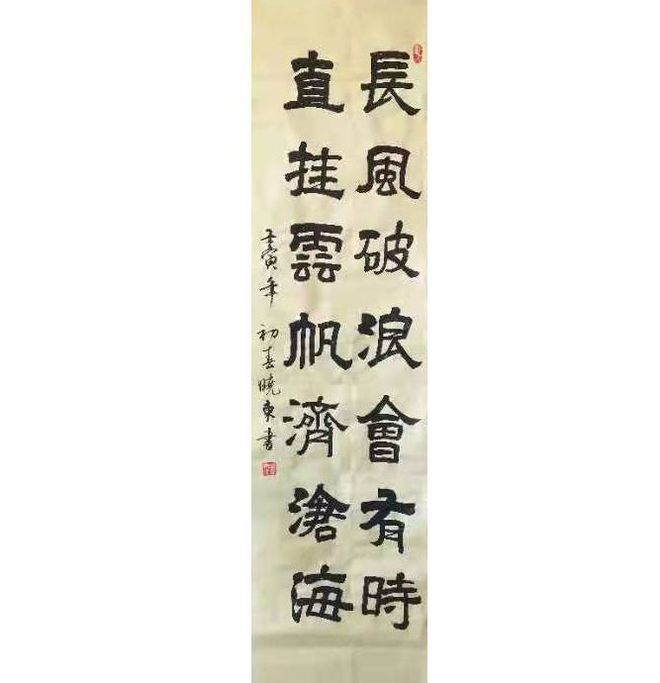 長風破浪會有時
直挂雲帆濟滄海
壬寅年初春曉東書